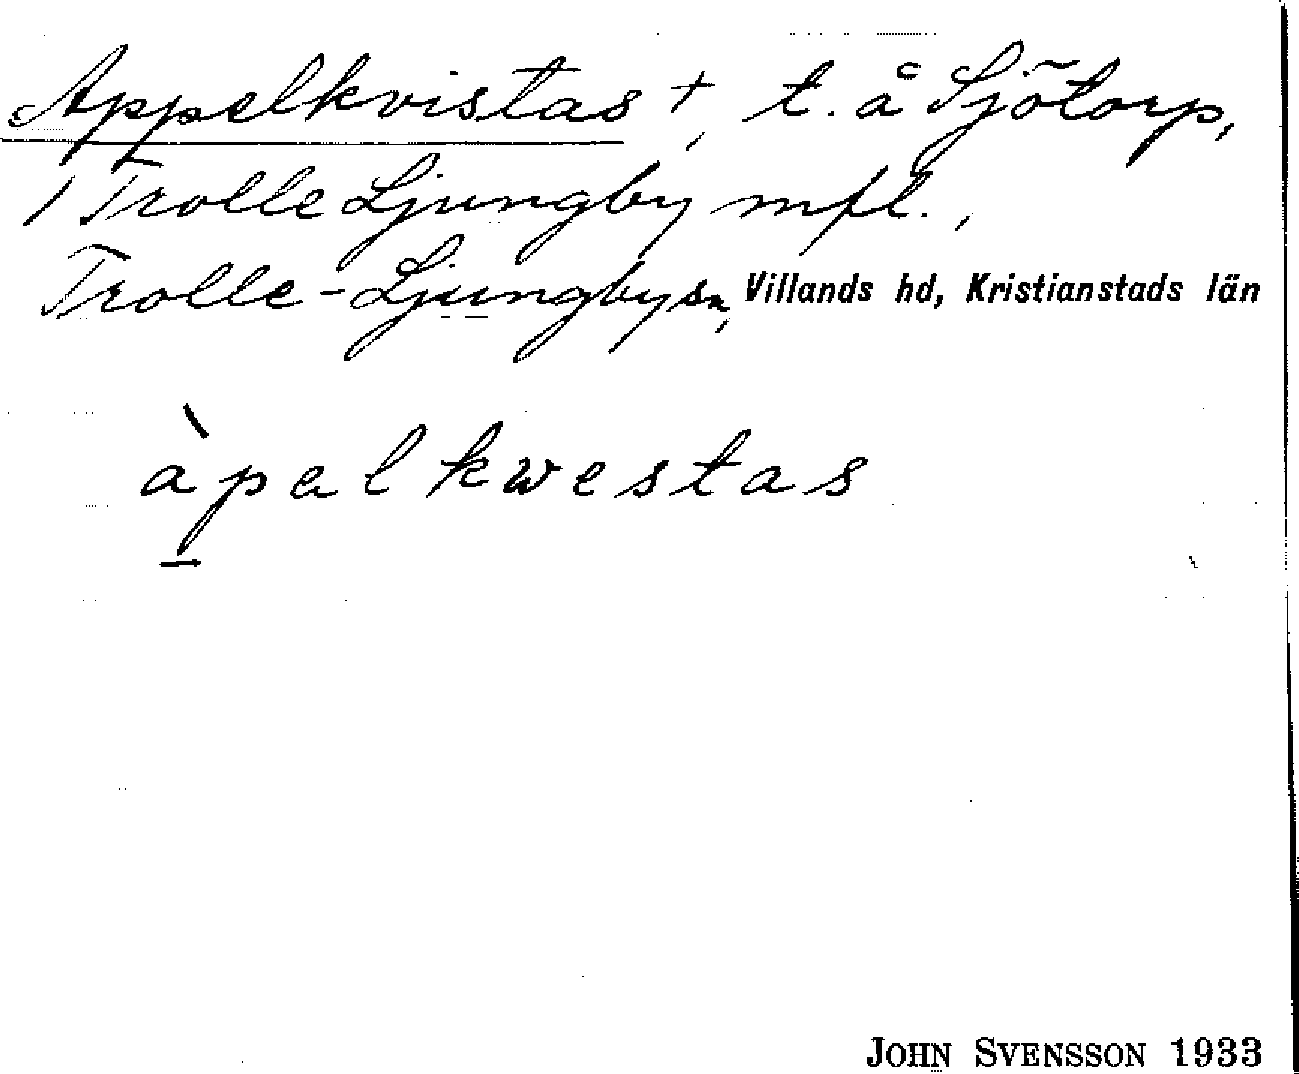 Appelkvistas †, t. å Sjötorp,
1 Trolle Ljungby mfl.,
Trolle-Ljungby sn, Villands hd, Kristianstads län
àpalkwestas
JOHN SVENSSON 1933